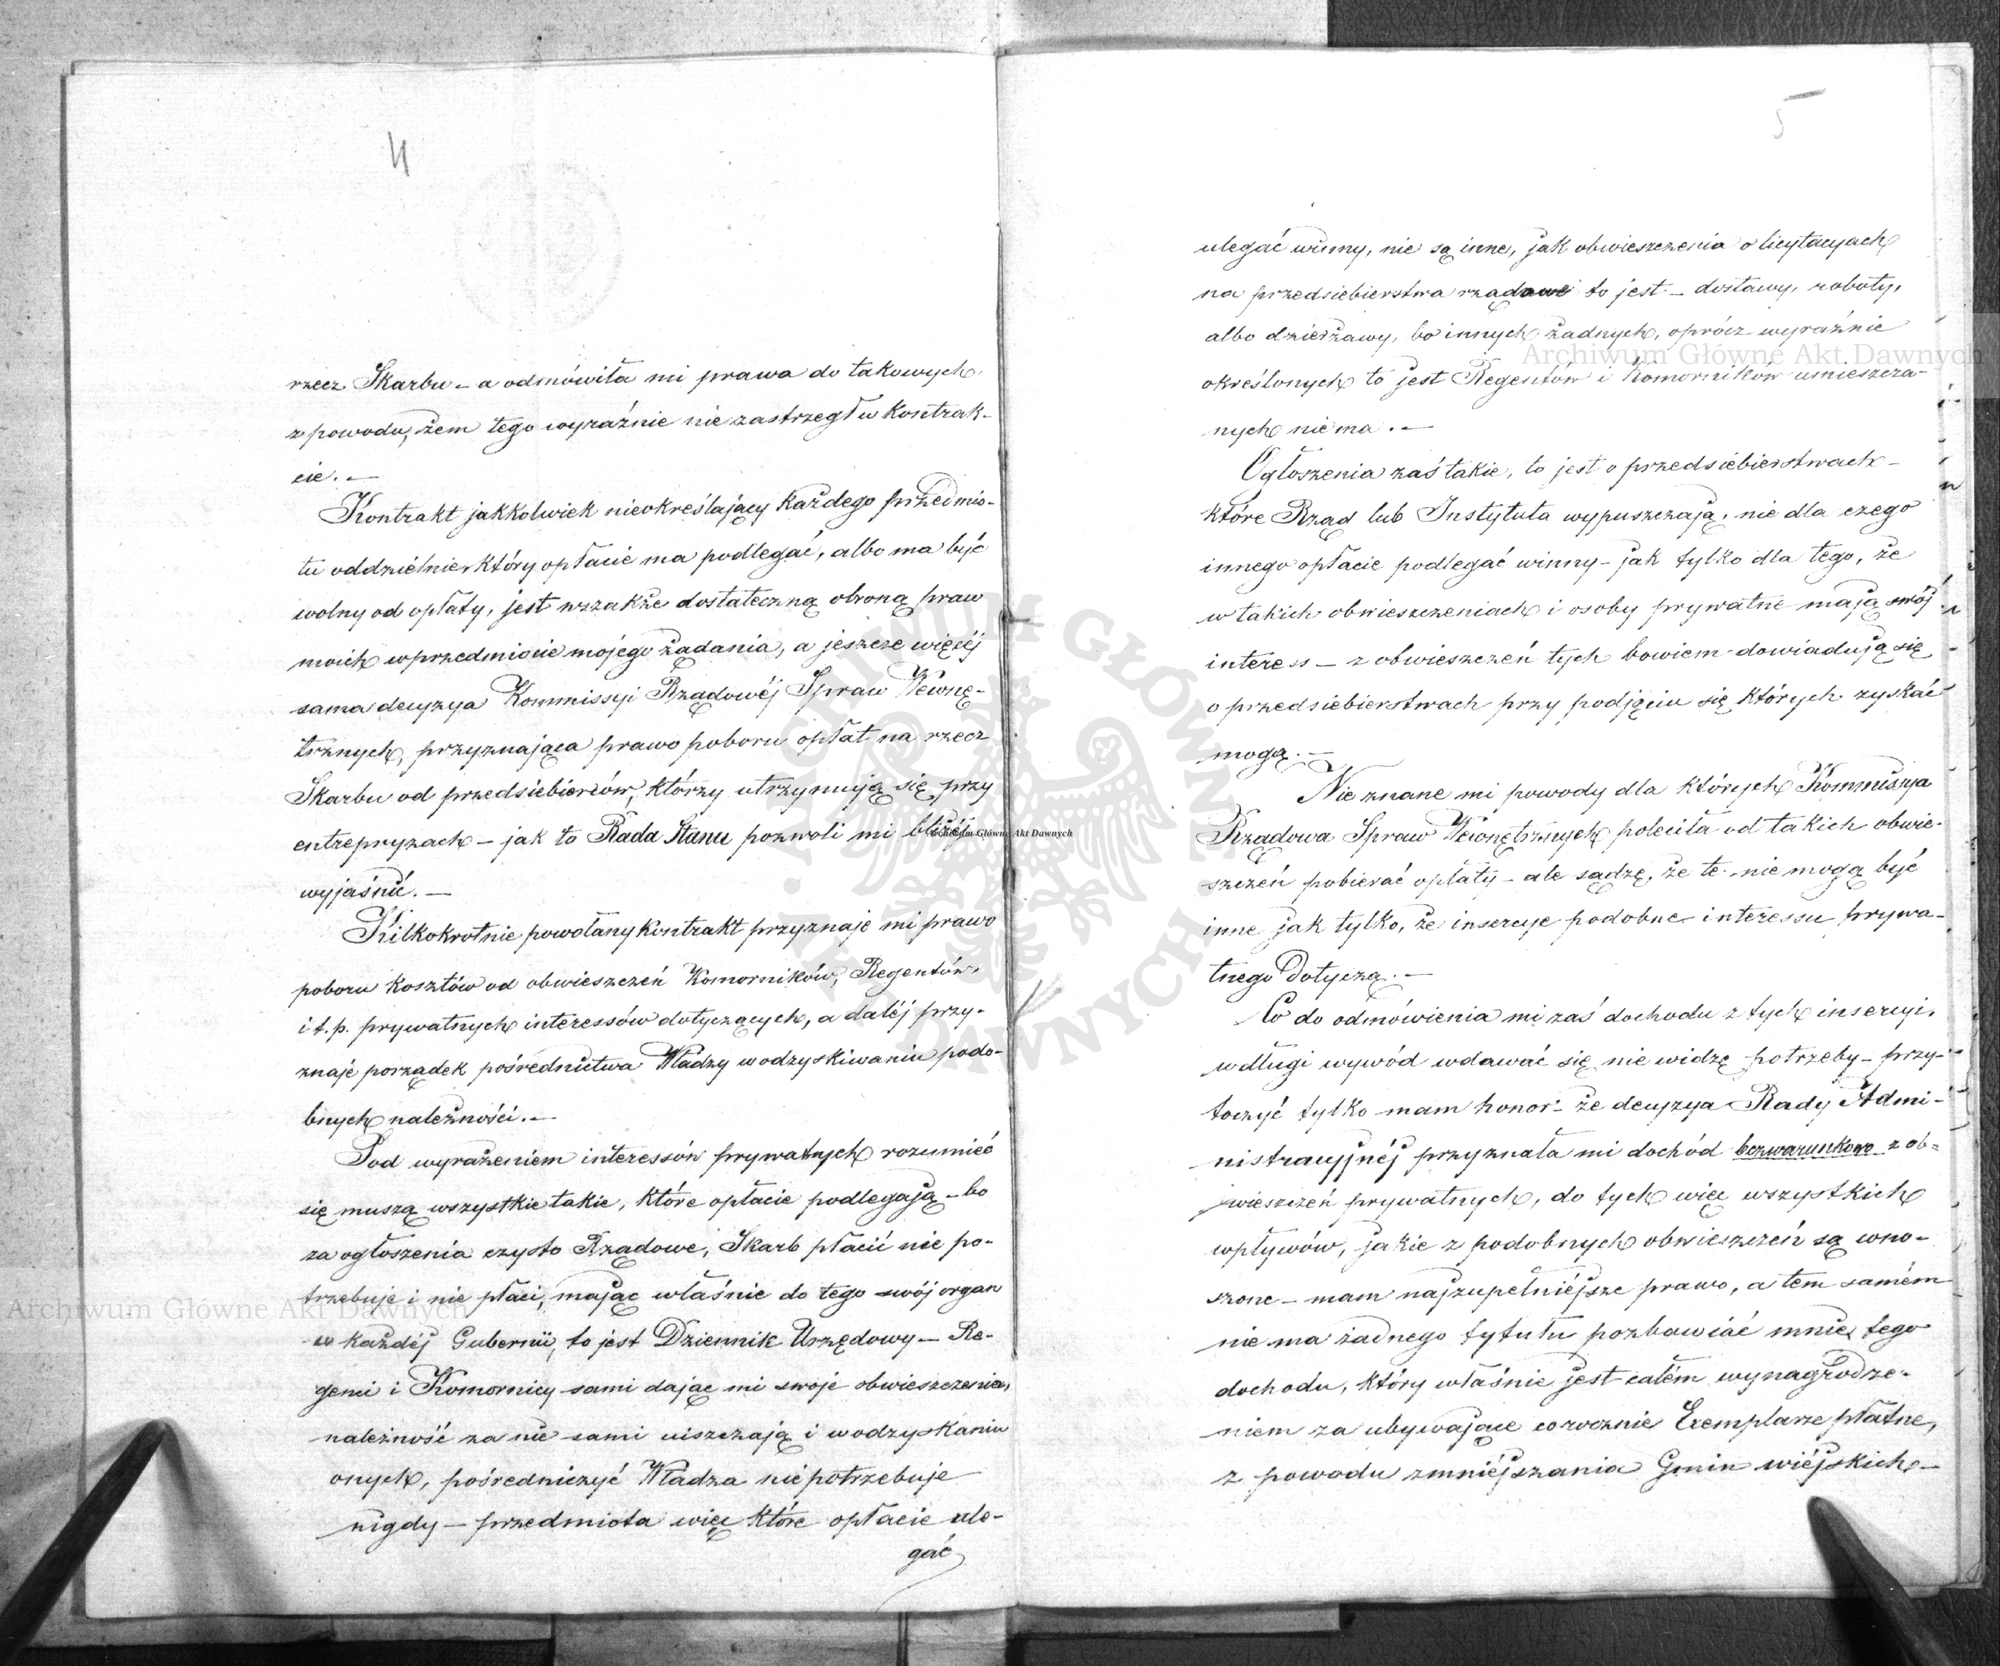 4
rzecz Skarbu – a odmówiła mi prawa do takowych
z powodu, żem tego wyraźnie nie zastrzegł w Kontrak-
cie. –
Kontrakt jakkolwiek nieokreślający każdego przedmio-
tu oddzielnie, który opłacie ma podlegać, albo ma być
wolny od opłaty, jest wszakże dostateczną obroną praw
moich w przedmiocie mojego żądania, a jeszcze więcéj
sama decyzya Kommissyi Rządowéj Spraw Wewnę-
trznych, przyznająca prawo poboru opłat na rzecz
Skarbu od przedsiebierców, którzy utrzymują się przy
entrepryzach – jak to Rada Stanu pozwoli mi bliżéj
wyjaśnić. –
Kilkokrotnie powołany kontrakt przyznaje mi prawo
poboru kosztów od obwieszczeń Komorników, Regentów,
i t. p. prywatnych interessów dotyczących, a daléj przy-
znaje porządek pośrednictwa Władzy w odzyskiwaniu podo-
bnych należności. –
Pod wyrażeniem interessów prywatnych rozumieć
się muszą wszystkie takie, które opłacie podlegają – bo
za ogłoszenia czysto Rządowe, Skarb płacić nie po-
trzebuje i nie płaci, mając właśnie do tego swój organ
w każdéj Gubernii, to jest Dziennik Urzędowy – Re-
genci i Komornicy sami dając mi swoje obwieszczenia,
należność za nie sami uiszczają i w odzyskaniu
onych, pośredniczyć Władza nie potrzebuje
nigdy – przedmiota więc które opłacie ule-
gać
5
ulegać winny, nie są inne, jak obwieszczenia o licytacyach
na przedsiebierstwa rządowe to jest – dostawy, roboty,
albo dzierżawy, bo innych żadnych, oprócz wyraźnie
określonych to jest Regentów i Komorników umieszcza-
nych nie ma. –
Ogłoszenia zaś takie, to jest o przedsiebierstwach –
które Rząd lub Instytuta wypuszczają, nie dla czego
innego opłacie podlegać winny – jak tylko dla tego, że
w takich obwieszczeniach i osoby prywatne mają swój
interess – z obwieszczeń tych bowiem dowiadują się
o przedsiebierstwach przy podjęciu się których zyskać
mogą. –
Nie znane mi powody dla których Kommissya
Rządowa Spraw Wewnętrznych poleciła od takich obwie-
szczeń pobierać opłaty – ale sądzę, że te nie mogą być
inne jak tylko, że insercye podobne interessu prywa-
tnego dotyczą. –
Co do odmówienia mi zaś dochodu z tych insercyi,
w długi wywód wdawać się nie widzę potrzeby – przy-
toczyć tylko mam honor – że decyzya Rady Admi-
nistracyjnéj przyznała mi dochód bezwarunkowo z ob-
wieszczeń prywatnych, do tych więc wszystkich
wpływów, jakie z podobnych obwieszczeń są wno-
szone – mam najzupełniéjsze prawo, a tem samém
nie ma żadnego tytułu pozbawiać mnie tego
dochodu, który właśnie jest całém wynagrodze-
niem za ubywające corocznie Exemplarze płatne,
z powodu zmniéjszania Gmin wiéjskich –
Archiwum Główne Akt Dawnych
Archiwum Główne Akt Dawnych
Archiwum Główne Akt Dawnych
ARCHIWUM GŁÓWNE AKT DAWNYCH